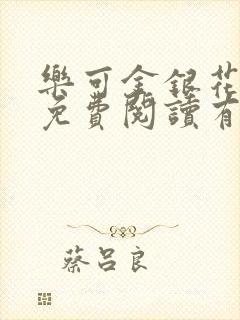 樂可金銀花
免費閱讀有
蔡呂良